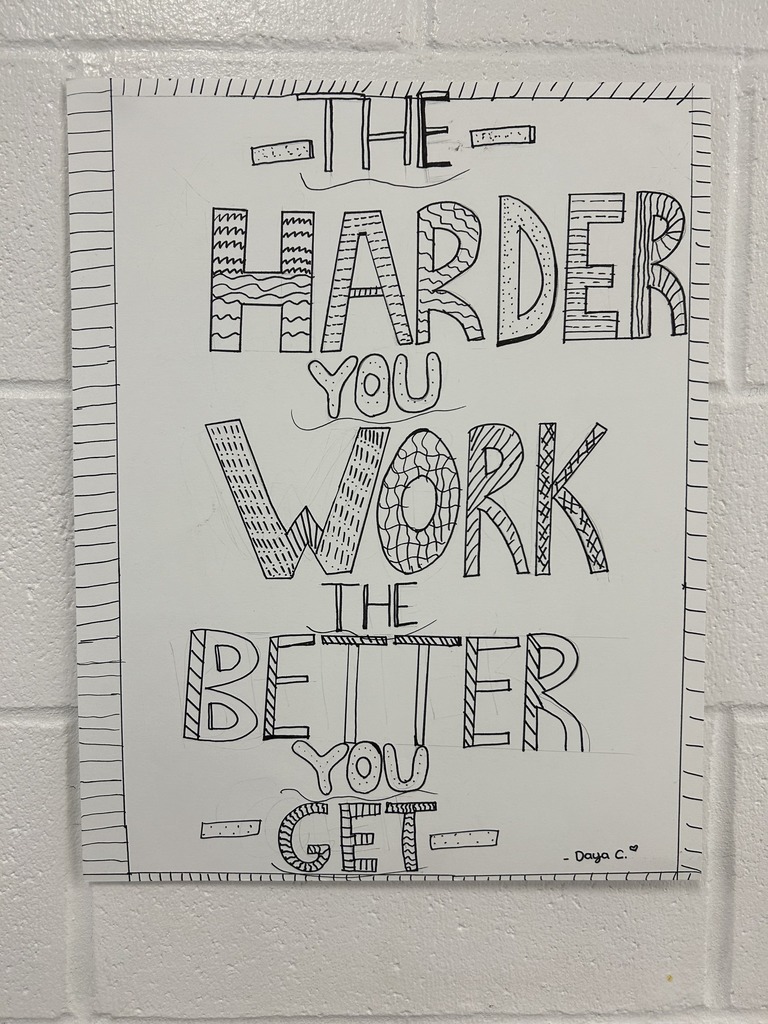 THE
HARDER
YOU
WORK
THE
BETTER
YOU
GET
- Daya C.